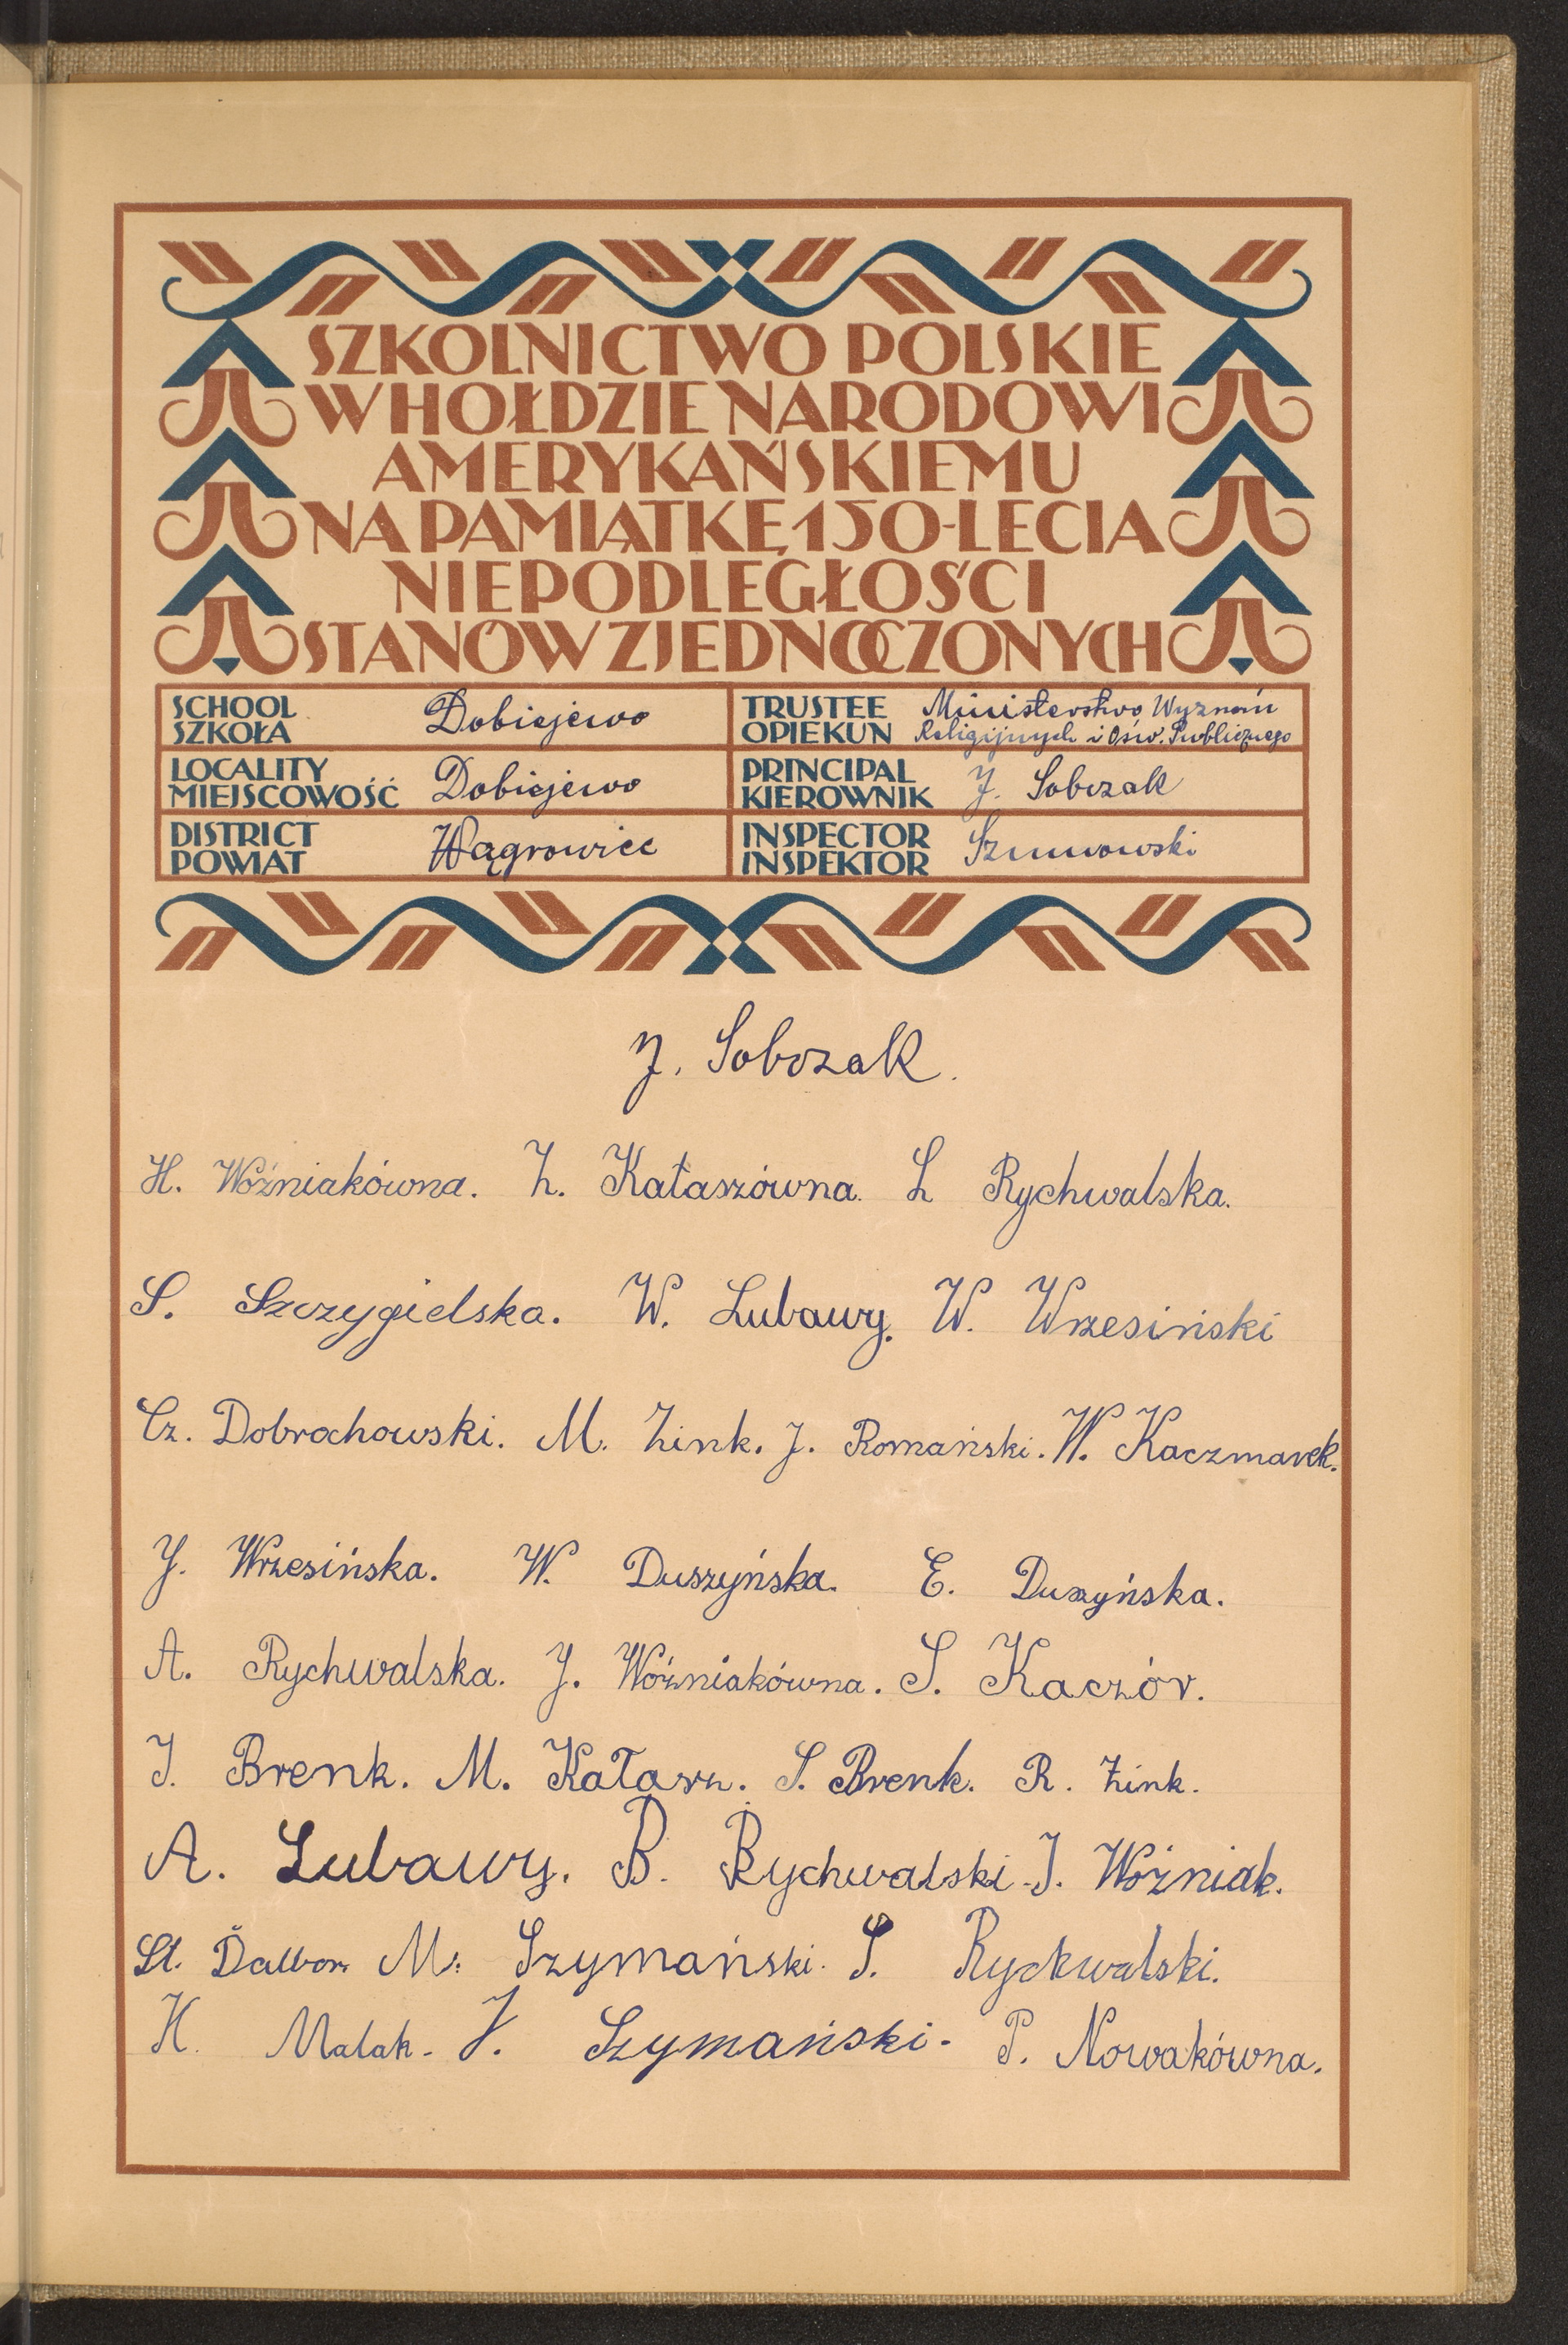 SZKOLNICTWO POLSKIE
W HOŁDZIE NARODOWI
AMERYKAŃSKIEMU
NA PAMIĄTKĘ 150-LECIA
NIEPODLEGŁOŚCI
STANÓW ZJEDNOCZONYCH
SCHOOL
SZKOŁA
Dobiejewo
TRUSTEE
OPIEKUN
Ministerstwo Wyznań
Religijnych i Ośw. Publicznego
LOCALITY
MIEJSCOWOŚĆ
Dobiejewo
PRINCIPAL
KIEROWNIK
J. Sobczak
DISTRICT
POWIAT
Wągrowiec
INSPECTOR
INSPEKTOR
J. Sobczak.
H. Woźniakówna. Z. Kałaszówna. L Rychwalska.
S. Szczygielska. W. Lubawy. W. Wrzesiński
Cz. Dobrochowski. M. Zink. J. Romański. W. Kaczmarek.
J. Wrzesińska. W. Duszyńska. E. Duszyńska.
A. Rychwalska. J. Woźniakówna. S. Kaczór.
J. Brenk. M. Kałasz. S. Brenk. R. Zink.
A. Lubawy. B. Rychwalski. J. Woźniak.
St. Dalbor. M. Szymański. S. Rychwalski.
H. Malak. J. Szymański. P. Nowakówna.